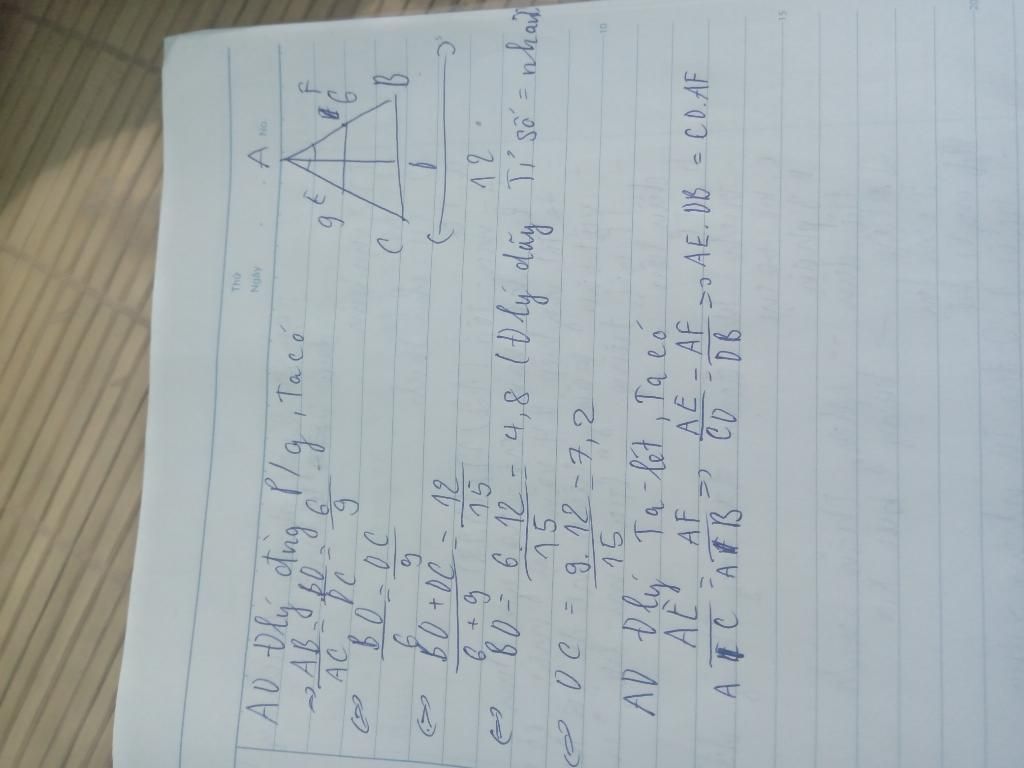 Thứ
Ngày
No.
A
E
F
9
6
C
B
D
12
AD Đlý đường P/g, Ta có
=> AB/AC = BD/DC = 6/9
<=> BD/6 = DC/9
<=> BD + DC/6 + 9 = 12/15
<=> BD = 6.12/15 = 4,8 (Đlý dãy Tỉ số = nhau)
<=> DC = 9.12/15 = 7,2
AD Đlý Ta-lét, Ta có
AE/AC = AF/AB => AE/CD = AF/DB => AE.DB = CD.AF
5
10
15
20